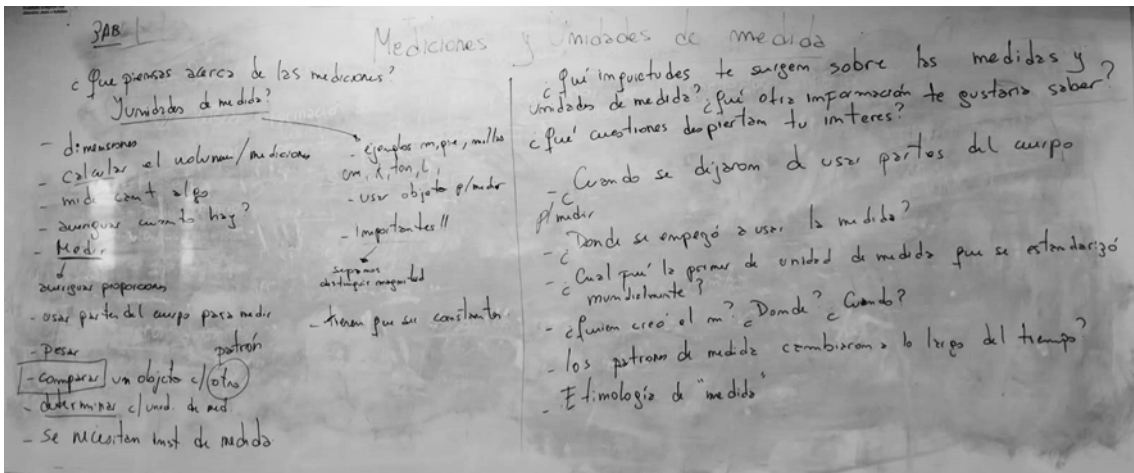 3AB
Mediciones y Unidades de medida
¿Que piensas acerca de las mediciones?
Y unidades de medida?
- dimensiones
- calcular el volumen/mediciones
- mide cant algo
- averiguar cuanto hay?
- Medir
averiguar proporciones
- usar partes del cuerpo para medir
- Pesar
patrón
- comparar un objeto c/ otro
- determinar c/unid. de med.
- Se necesitan inst de medida
- ejemplos m, pie, millas
cm, K, ton, L,
- usar objeto p/medir
- Importantes!!
sepamos
distinguir magnitud
- tienen que ser constantes
¿Qué inquietudes te surgen sobre las medidas y
unidades de medida? ¿Qué otra información te gustaria saber?
¿Qué cuestiones despiertan tu interes?
- ¿Cuando se dejaron de usar partes del cuerpo
p/medir
- ¿Donde se empezó a usar la medida?
- ¿Cual fué la primer de unidad de medida que se estandarizó
mundialmente?
- ¿Quien creó el m? ¿Donde? ¿Cuando?
- los patrones de medida cambiaron a lo largo del tiempo?
- Etimología de "medida"